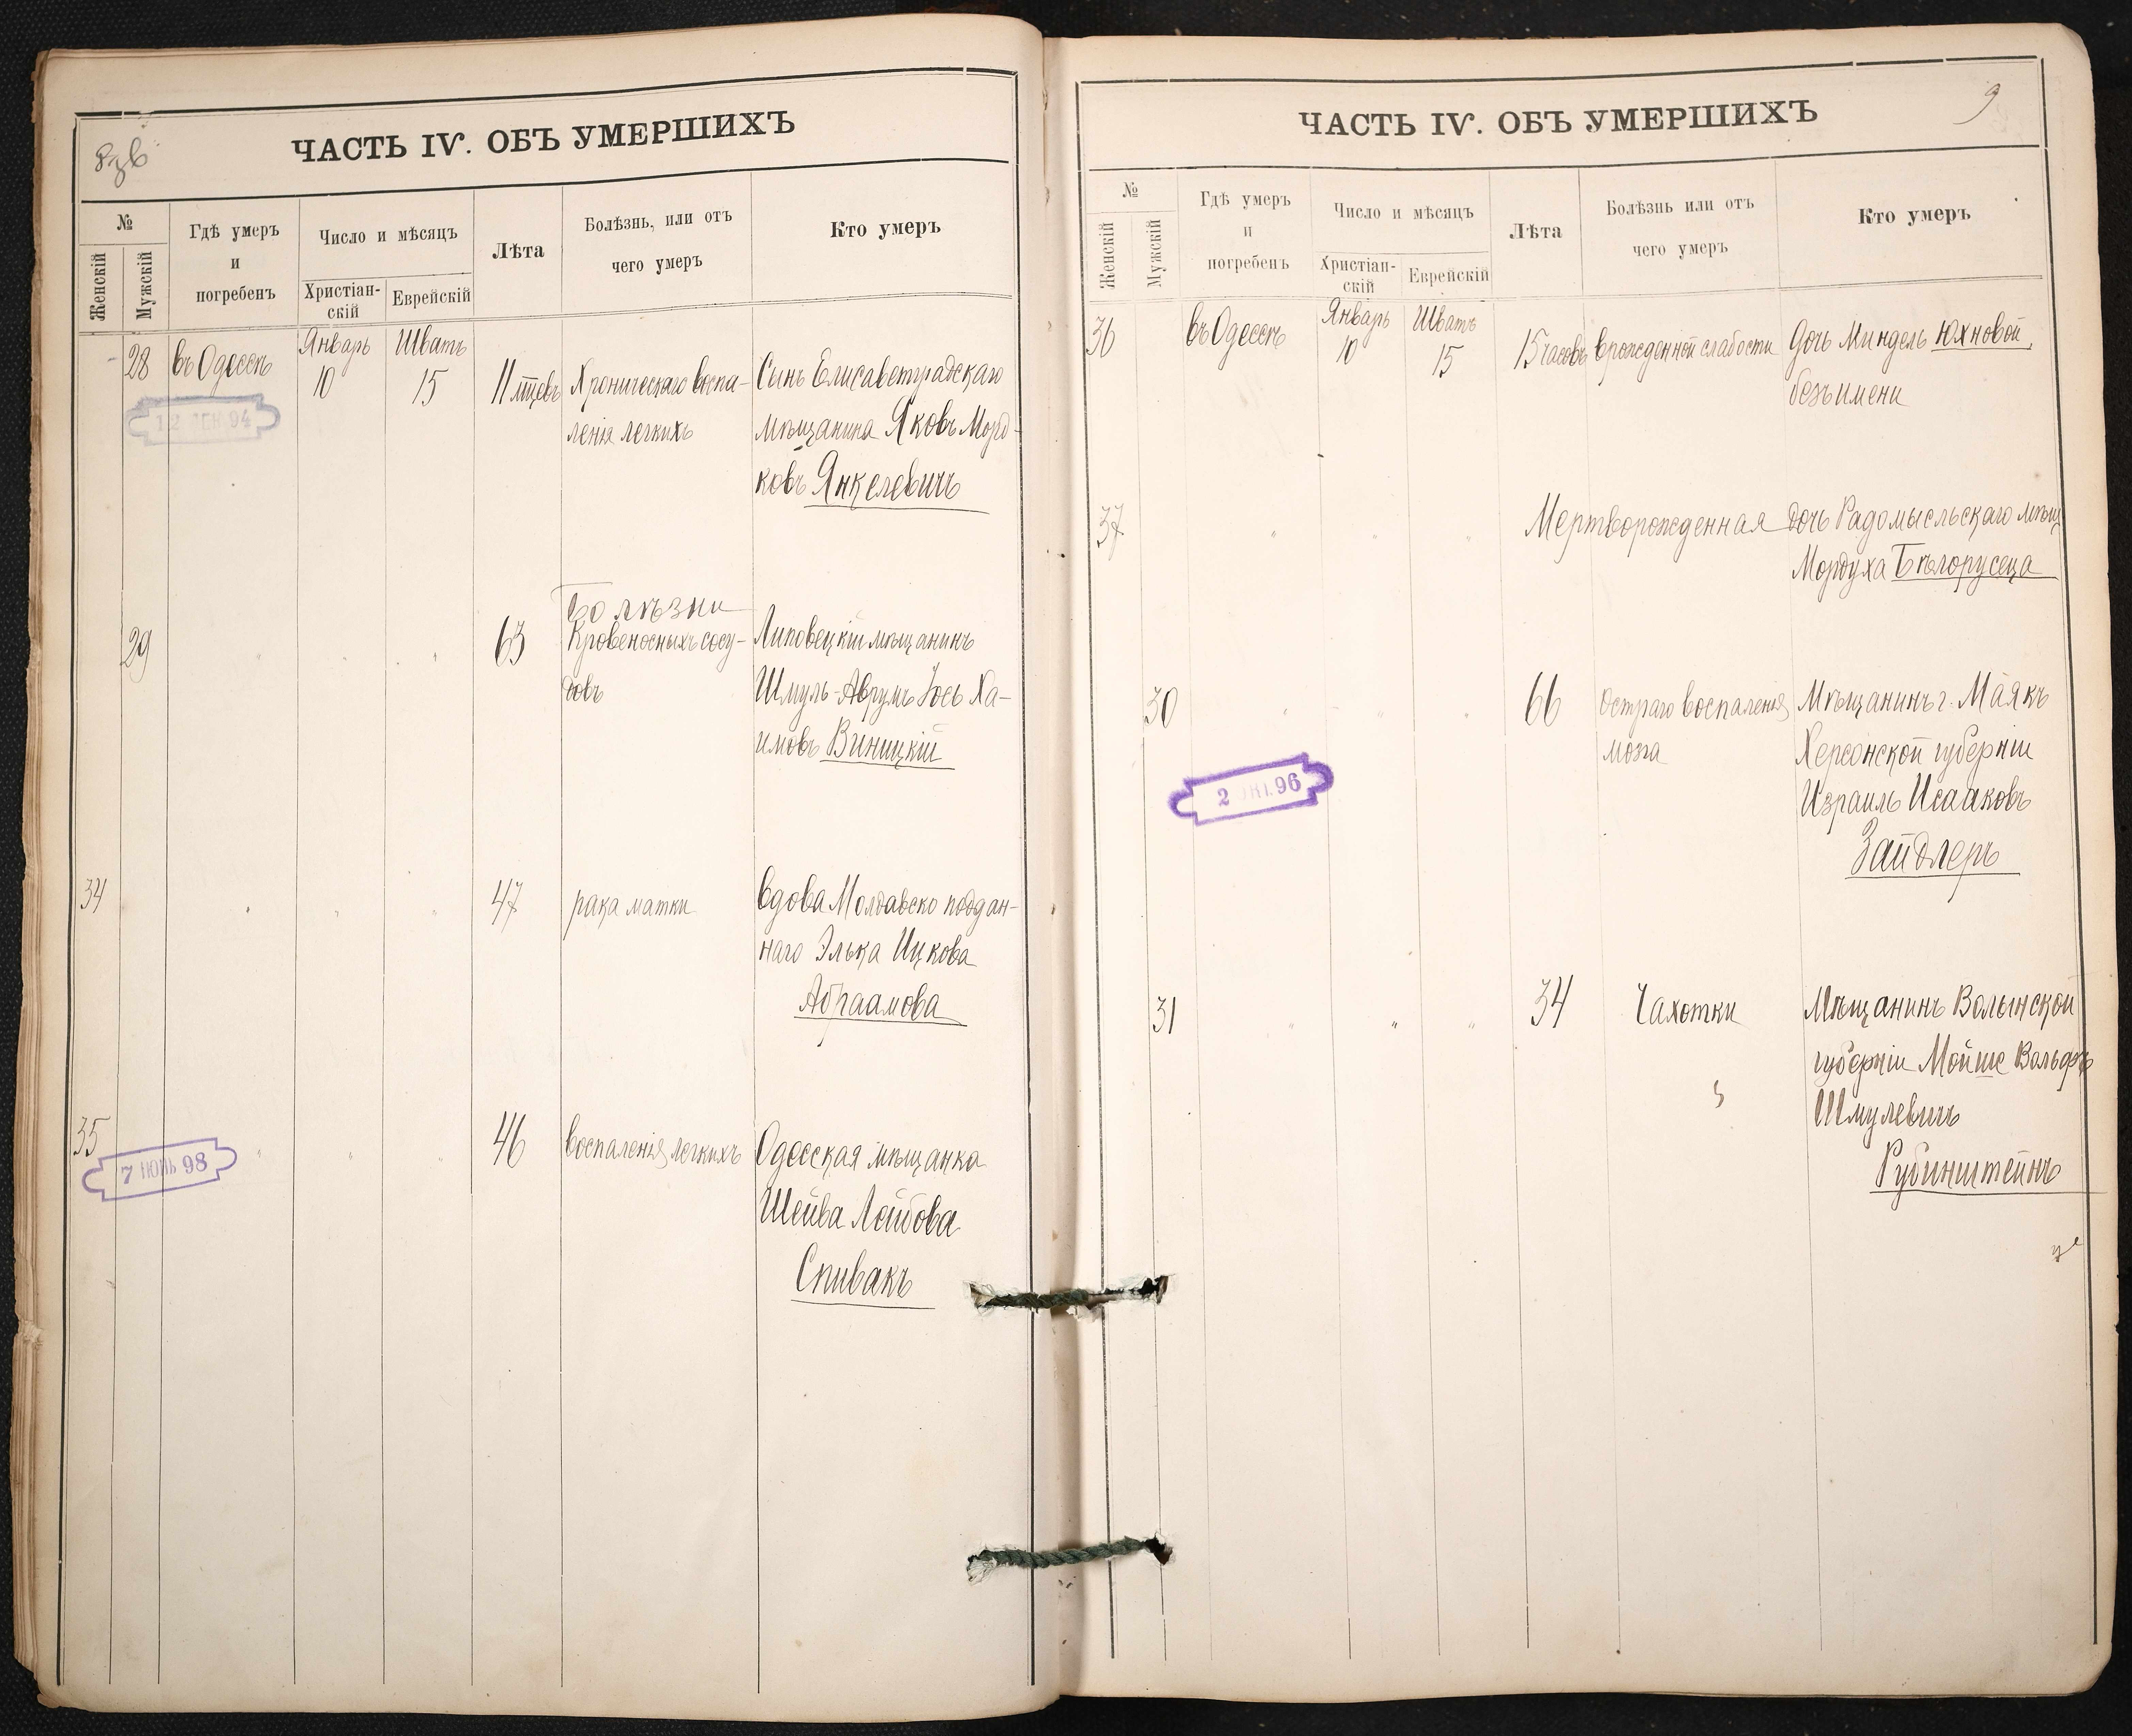 8 зв
ЧАСТЬ IV. ОБЪ УМЕРШИХЪ
№
Женскій
Мужскій
Гдѣ умеръ
и
погребенъ
Число и мѣсяцъ
Христіан-
скій
Еврейскій
Лѣта
Болѣзнь, или отъ
чего умеръ
Кто умеръ
28 въ Одессѣ Январь 10 Шватъ 15 11 мѣцевъ Хроническаго воспа- Сынъ Елисаветградскаго
ленія легкихъ мѣщанина Яковъ Морд-
ковъ Янкелевичъ
12 94
Болѣзни
29 " " " 63 Кровеносныхъ сосу- Липовецкій мѣщанинъ
довъ Шмуль-Аврумъ Іось Ха-
имовъ Виницкій
34 " " " 47 рака матки Вдова Молдавско поддан-
наго Элька Ицкова
Абраамова
35 " " " 46 воспаленія легкихъ Одесская мѣщанка
7 ИЮНЬ 98
Шейва Лейбова
Спивакъ
9
ЧАСТЬ IV. ОБЪ УМЕРШИХЪ
№
Женскій
Мужскій
Гдѣ умеръ
и
погребенъ
Число и мѣсяцъ
Христіан-
скій
Еврейскій
Лѣта
Болѣзнь или отъ
чего умеръ
Кто умеръ
36 въ Одессѣ Январь 10 Шватъ 15 15 часовъ врожденной слабости Дочь Миндель Юхновой,
безъ имени
37 " " " Мертворожденная дочь Радомысльскаго мѣщ
Мордуха Бѣлорусеца
30 " " " 66 Остраго воспаленія Мѣщанинъ г. Маякъ
мозга Херсонской губерніи
2 96
Израиль Исааковъ
Зайдлеръ
31 " " " 34 Чахотки Мѣщанинъ Волынской
губерніи Мойше Вольфъ
Шмулевичъ
Рубинштейнъ